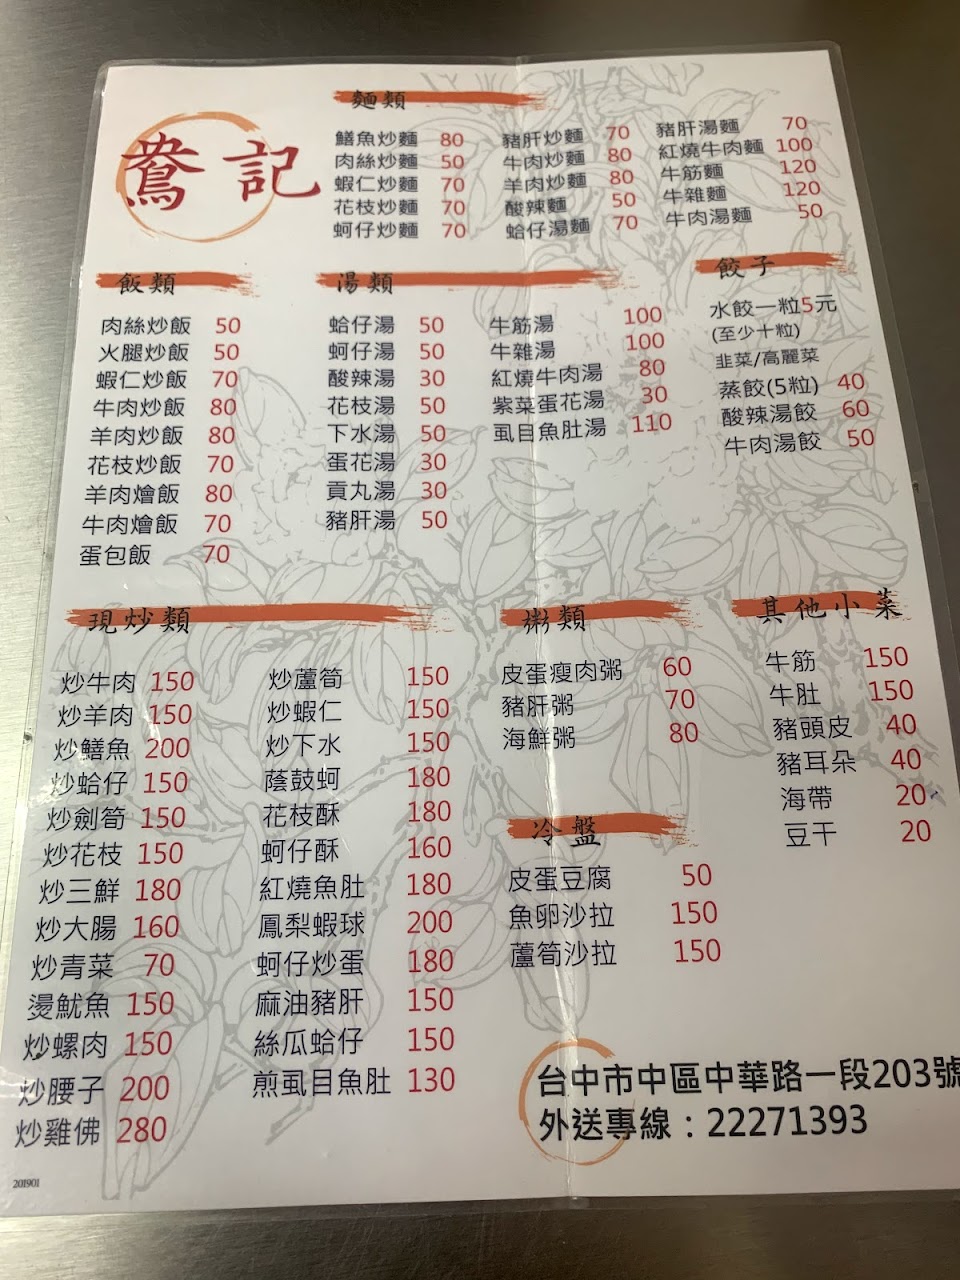 鴦記
麵類
鱔魚炒麵 80
肉絲炒麵 50
蝦仁炒麵 70
花枝炒麵 70
蚵仔炒麵 70
豬肝炒麵 70
牛肉炒麵 80
羊肉炒麵 80
酸辣麵 50
蛤仔湯麵 70
豬肝湯麵 70
紅燒牛肉麵 100
牛筋麵 120
牛雜麵 120
牛肉湯麵 50
飯類
肉絲炒飯 50
火腿炒飯 50
蝦仁炒飯 70
牛肉炒飯 80
羊肉炒飯 80
花枝炒飯 70
羊肉燴飯 80
牛肉燴飯 70
蛋包飯 70
湯類
蛤仔湯 50
蚵仔湯 50
酸辣湯 30
花枝湯 50
下水湯 50
蛋花湯 30
貢丸湯 30
豬肝湯 50
牛筋湯 100
牛雜湯 100
紅燒牛肉湯 80
紫菜蛋花湯 30
虱目魚肚湯 110
餃子
水餃一粒5元
(至少十粒)
韭菜/高麗菜
蒸餃(5粒) 40
酸辣湯餃 60
牛肉湯餃 50
現炒類
炒牛肉 150
炒羊肉 150
炒鱔魚 200
炒蛤仔 150
炒劍筍 150
炒花枝 150
炒三鮮 180
炒大腸 160
炒青菜 70
燙魷魚 150
炒螺肉 150
炒腰子 200
炒雞佛 280
炒蘆筍 150
炒蝦仁 150
炒下水 150
蔭鼓蚵 180
花枝酥 180
蚵仔酥 160
紅燒魚肚 180
鳳梨蝦球 200
蚵仔炒蛋 180
麻油豬肝 150
絲瓜蛤仔 150
煎虱目魚肚 130
粥類
皮蛋瘦肉粥 60
豬肝粥 70
海鮮粥 80
冷盤
皮蛋豆腐 50
魚卵沙拉 150
蘆筍沙拉 150
其他小菜
牛筋 150
牛肚 150
豬頭皮 40
豬耳朵 40
海帶 20
豆干 20
台中市中區中華路一段203號
外送專線：22271393
201901